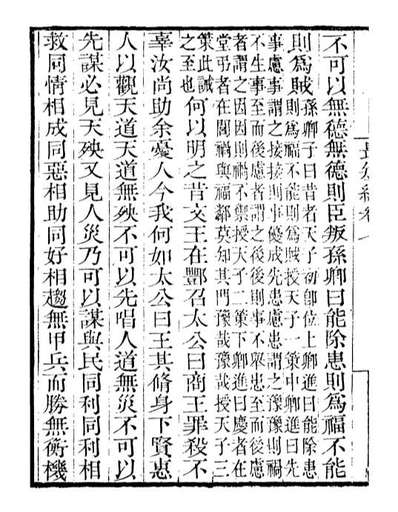 不可以無德無德則臣叛孫卿曰能除患則為福不能
則為賊
孫卿子曰昔者天子初即位上卿進曰能除患
則為福不能則為賊授天子一策中卿進曰先
事慮事謂之接接則事優成先患慮患謂之豫豫則禍
不生事至而後慮者謂之後後則事不舉患至而後慮
者謂之困困則禍不禦授天子二策下卿進曰慶者在
堂弔者在閭禍與福鄰莫知其門豫哉豫哉授天子三
策此誡
之至也
何以明之昔文王在酆召太公曰商王罪殺不
辜汝尚助余憂人今我何如太公曰王其脩身下賢惠
人以觀天道天道無殃不可以先唱人道無災不可以
先謀必見天殃又見人災乃可以謀與民同利同利相
救同情相成同惡相助同好相趨無甲兵而勝無衡機